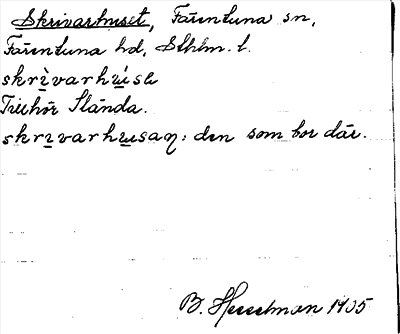 Skrivarhuset, Färentuna sn,
Färentuna hd, Sthlm. l.
skrìvarhúsə
Tillhör Slånda.
skrìvarhusaŋ: den som bor där.
B. Hesselman 1905